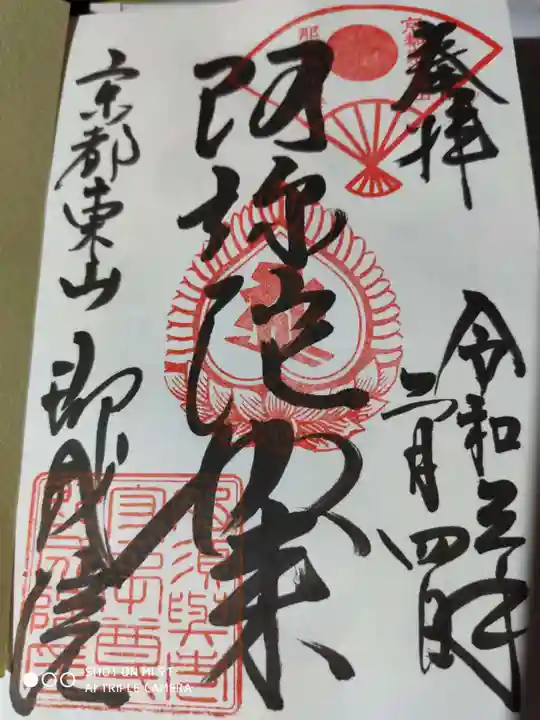 奉拝
令和三年
二月四日
阿弥陀如来
京都東山
即成院
京都
那須
SHOT ON MI 9T
AI TRIPLE CAMERA